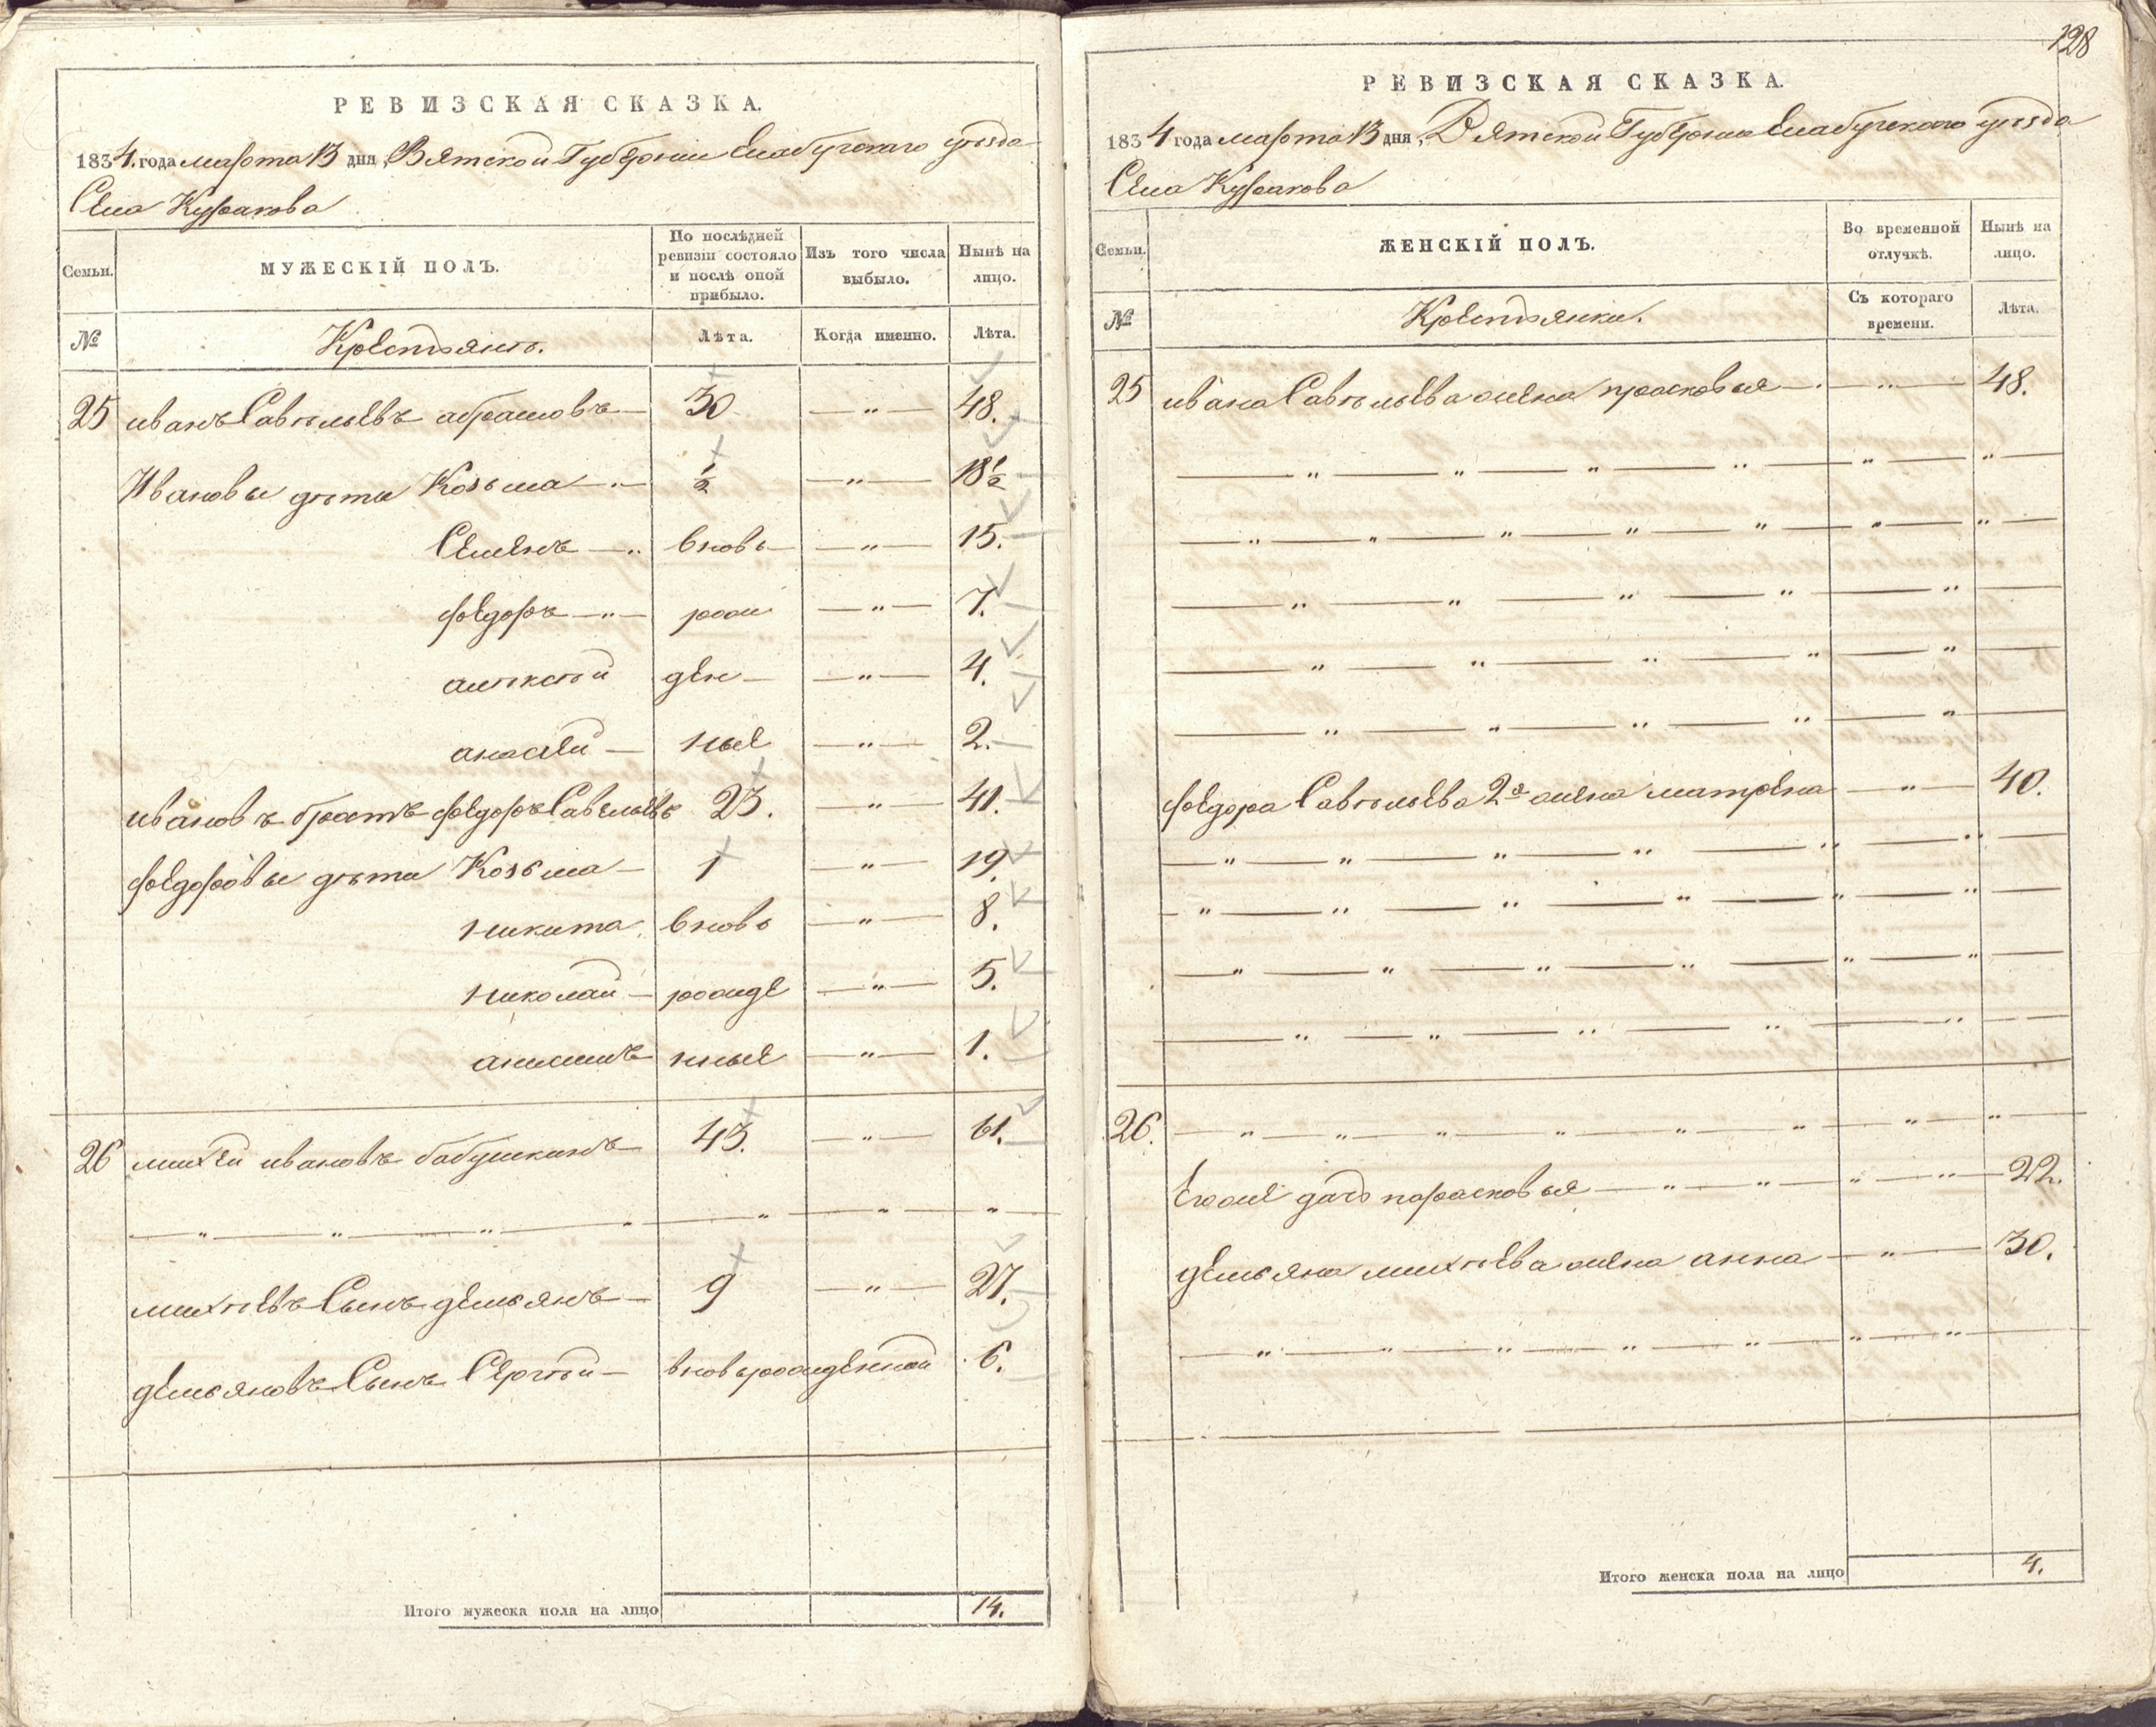 РЕВИЗСКАЯ СКАЗКА.
1834. года марта 13 дня, Вятской Губернии Елабугскаго уѣзда
Села Куракова
Семьи.
МУЖЕСКІЙ ПОЛЪ.
По послѣдней ревизіи состояло и послѣ оной прибыло.
Изъ того числа выбыло.
Нынѣ на лицо.
№
Крестьянъ.
Лѣта.
Когда именно.
Лѣта.
25 иванъ Савѣльевъ абрамовъ — 30 — " — 48.
Ивановы дѣти Козьма — 1/2 — " — 18 1/2
Семенъ — вновь — " — 15.
федоръ — рож — " — 7.
алѣксѣй ден — " — 4.
анасей — ные — " — 2.
ивановъ братъ федоръ Савельевъ 23. — " — 41.
федоровы дѣти Козьма — 1 — " — 19.
никита вновь — " — 8.
николай — рожде — " — 5.
анисимъ нные — " — 1.
26 михей ивановъ бабушкинъ — 43. — " — 61.
— " — " — " — " — " — " — "
михѣевъ Сынъ демьянъ — 9 — " — 27.
демьяновъ Сынъ Сергѣй — вновьрожденной 6.
Итого мужеска пола на лицо 14.
128
РЕВИЗСКАЯ СКАЗКА.
1834 года марта 13 дня, Вятской Губернии Елабугскаго уѣзда
Села Куракова
Семьи.
ЖЕНСКІЙ ПОЛЪ.
Во временной отлучкѣ.
Нынѣ на лицо.
№
Крестьянки.
Съ котораго времени.
Лѣта.
25 ивана Савѣльева жена прасковья — " — 48.
— " — " — " — " — " — " —
— " — " — " — " — " — " — " —
— " — " — " — " — " —
— " — " — " — " — " —
— " — " — " — " — " —
федора Савѣльева 2я жена матрена — " — 40.
— " — " — " — " — " — " —
— " — " — " — " — " — " —
— " — " — " — " — " — " —
— " — " — " — " — " —
26. — " — " — " — " — " — " — " — "
Егоже дочь парасковья — " — " — " — " — 22.
демьяна михѣева жена анна — " — 30.
— " — " — " — " — " — " — " —
Итого женска пола на лицо 4.